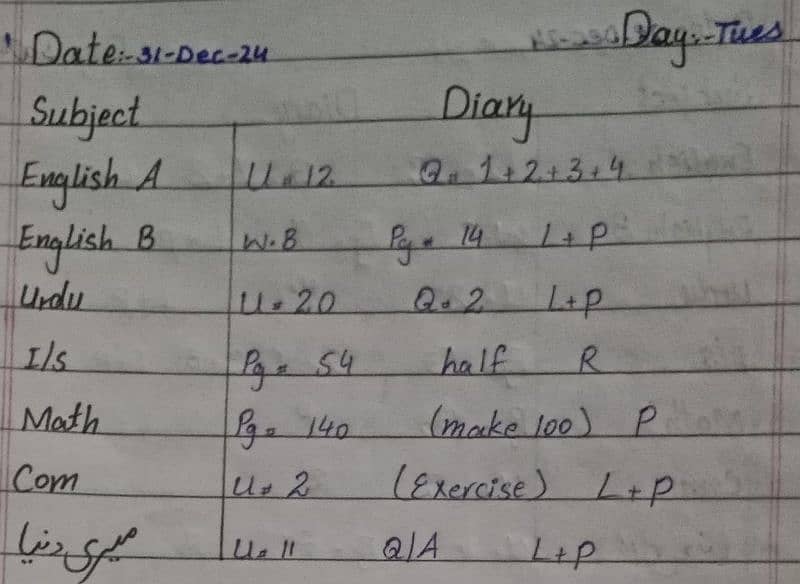 Date:-31-Dec-24 Day:-Tues
Subject Diary
English A U=12 Q=1+2+3+4
English B W.B Pg=14 L+P
Urdu U=20 Q=2 L+P
I/S Pg=54 half R
Math Pg=140 (make 100) P
Com U=2 (Exercise) L+P
میری دنیا U=11 Q/A L+P